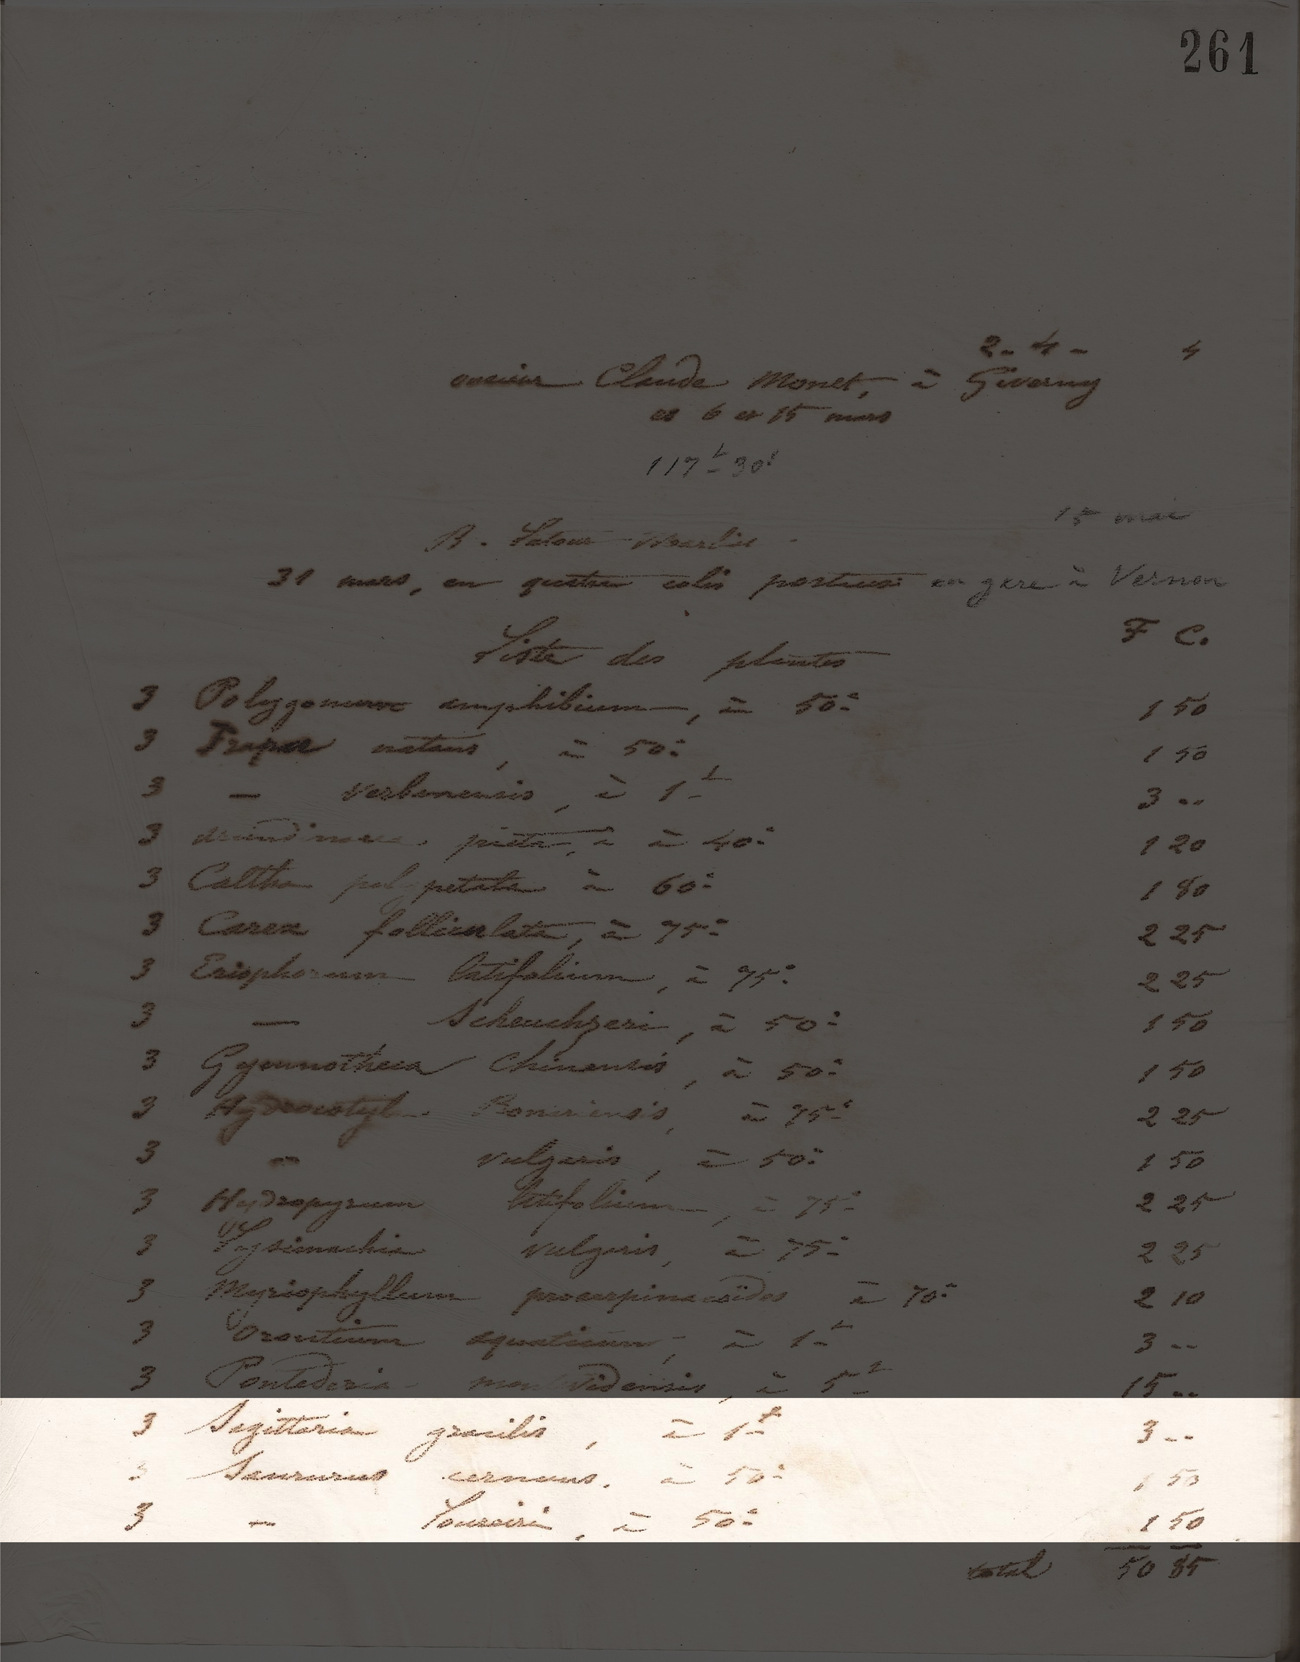 261
2 - 4 - 4
onsieur Claude Monet, à Giverny
es 6 et 15 mars
117 f 30c
15 mai
B. Latour-Marliac
31 mars, en quatre colis postaux en gare à Vernon
F C.
Liste des plantes
3 Polygonum amphibium, à 50c 1 50
3 Trapa natans, à 50c 1 50
3 — verbanensis, à 1f 3 --
3 Arundinaria picta, à 40c 1 20
3 Caltha polypetala à 60c 1 80
3 Carex folliculata, à 75c 2 25
3 Eriophorum latifolium, à 75c 2 25
3 — Scheuchzeri, à 50c 1 50
3 Gymnotheca chinensis, à 50c 1 50
3 Hydrocotyle Bonariensis, à 75c 2 25
3 — vulgaris, à 50c 1 50
3 Hydropyrum latifolium, à 75c 2 25
3 Lysimachia vulgaris, à 75c 2 25
3 Myriophyllum proserpinacoïdes à 70c 2 10
3 Orontium aquaticum, à 1f 3 --
3 Pontederia montevidensis, à 5f 15 --
3 Sagittaria gracilis, à 1f 3 --
3 Saururus cernuus, à 50c 1 50
3 — Loureiri, à 50c 1 50
total 50 85